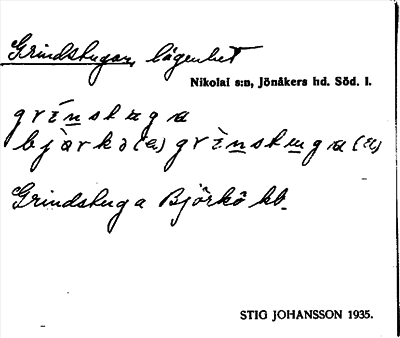 Grindstugan, lägenhet
Nikolai s:n, Jönåkers hd. Söd. l.
grinstuga
bjärkö(a) grinstuga(n)
Grindstuga Björkö kb.
STIG JOHANSSON 1935.